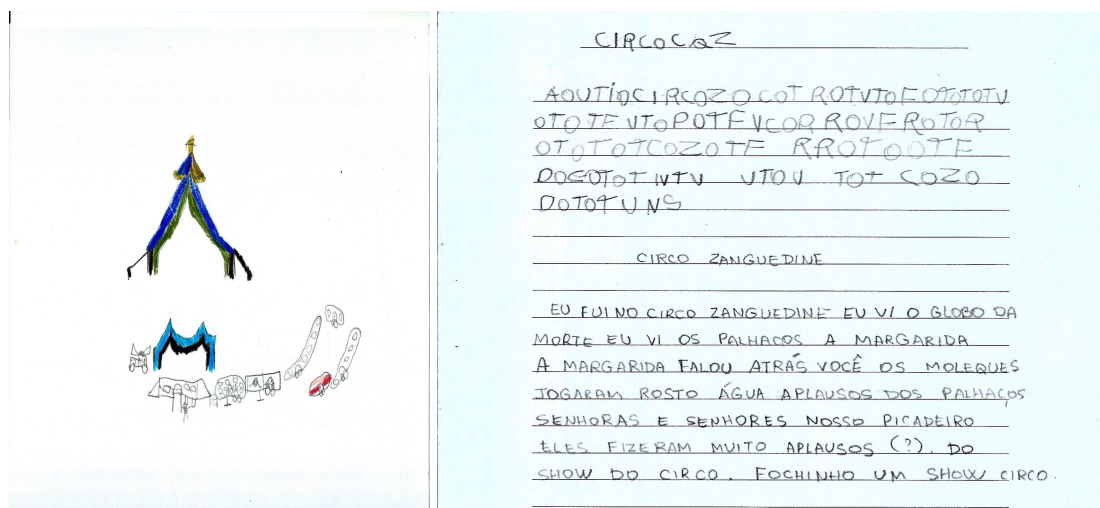 CIRCOCAZ
AOUTÍOCIRCOZOCOT ROTVTOFOTOTOTV
OTOTFVTOPOTFVCORROVFROTOR
OTOTOTCOZOTF RROTOOTF
DOCOTOTIVTV VTOV TOT COZO
DOTOTUNS
CIRCO ZANGUEDINE
EU FUI NO CIRCO ZANGUEDINE EU VI O GLOBO DA
MORTE EU VI OS PALHACOS A MARGARIDA
A MARGARIDA FALOU ATRÁS VOCÊ OS MOLEQUES
JOGARAM ROSTO ÁGUA APLAUSOS DOS PALHAÇOS
SENHORAS E SENHORES NOSSO PICADEIRO
ELES FIZERAM MUITO APLAUSOS (?). DO
SHOW DO CIRCO. FOCHINHO UM SHOW CIRCO.